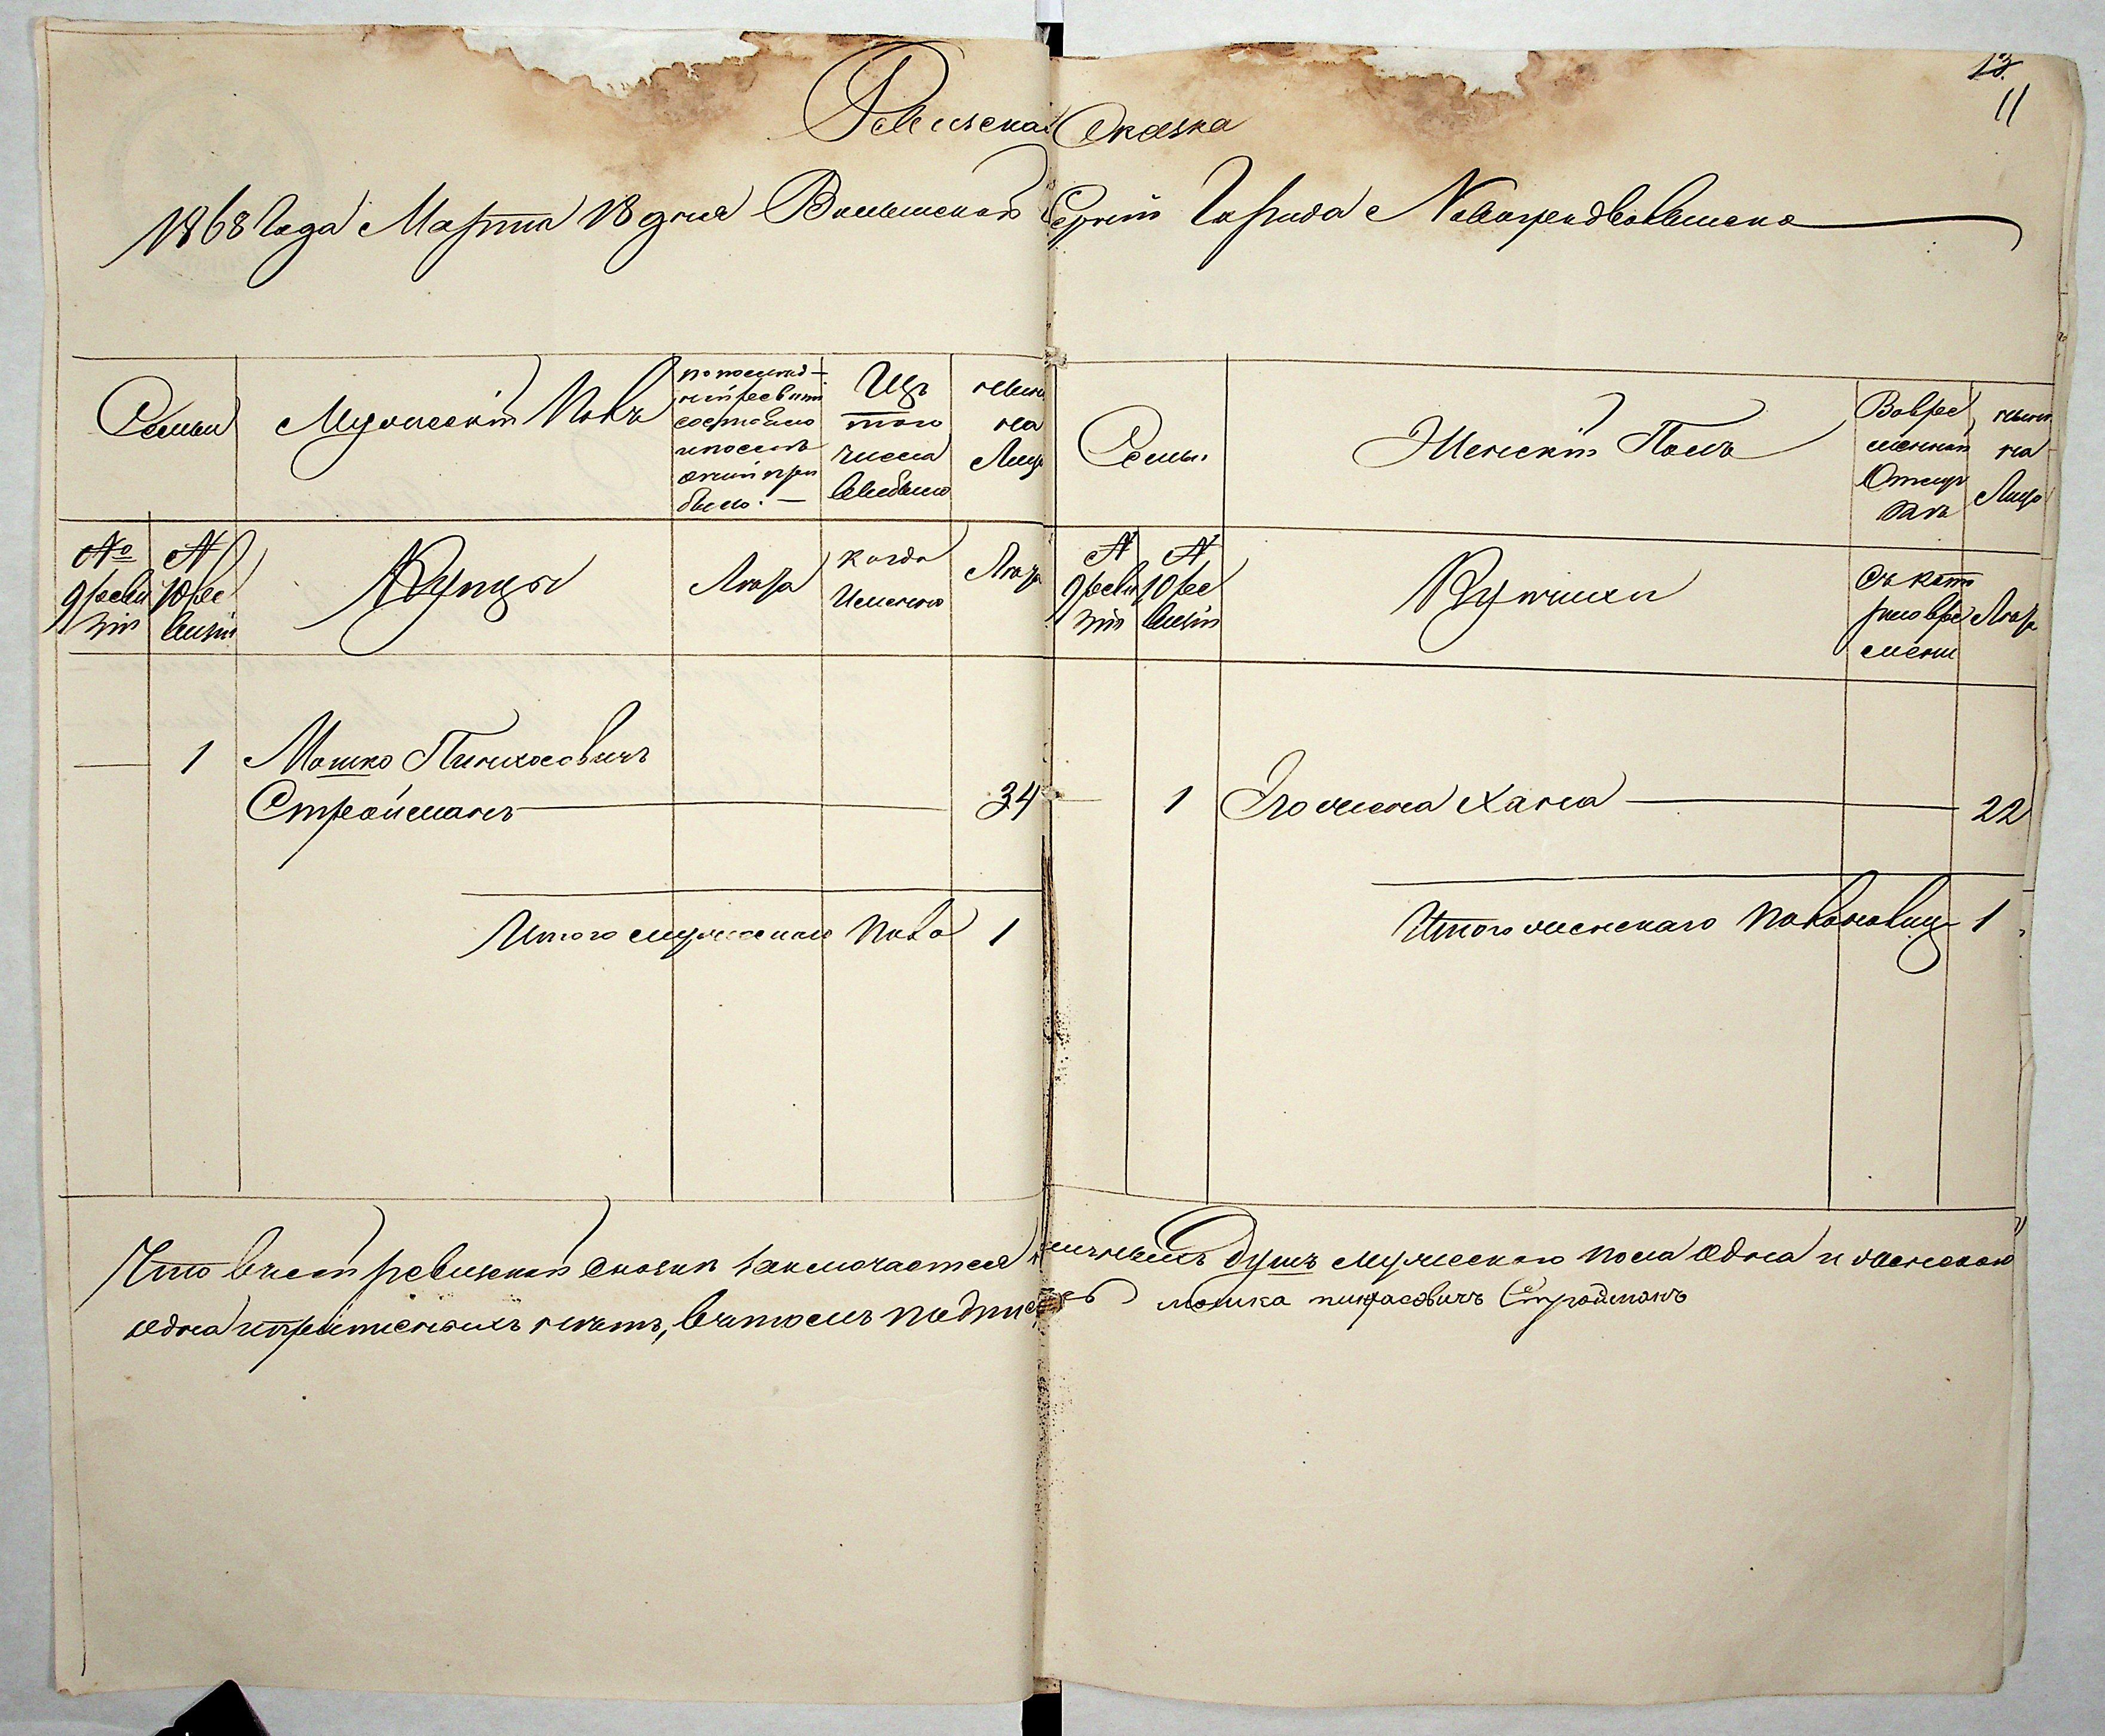 13.
11
Ревизская Сказка
1868 Года Марта 18 дня Волынской Губерніи Города Новоградволынска
Семьи
Мужескій Полъ
по послѣд-
ней ревизіи
состояло
и послѣ
оной при
было. —
Изъ
того
числа
выбыло
нынѣ
на
Лицо
Семьи
Женскій Полъ
Вовре
менной
Отлуч
кѣ
нынѣ
на
Лицо
№
9 реви
зіи
№
10 ре
визіи
Купцы
Лѣта
Когда
Именно
Лѣта
№
9 реви
зіи
№
10 ре
визіи
Купчихи
Съ кото
раго вре
мени
Лѣта
1 Мошко Пинхосовичъ
Стройманъ 34
1 Его жена Хана 22
Итого мужескаго пола 1
Итого женскаго пола налицо 1
Что в сей ревизкой сказки заключается наличныхъ душъ мужескаго пола одна и женскаго
одна и прописныхъ нѣтъ, въ томъ подписуюсь мошка пинхасовичъ Стройманъ